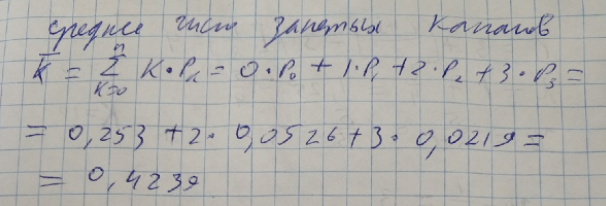 среднее число занятых каналов
K̅ = Σ_{K=0}^{n} K·P_k = 0·P₀ + 1·P₁ + 2·P₂ + 3·P₃ =
= 0,253 + 2· 0,0526 + 3· 0,0219 =
= 0,4239